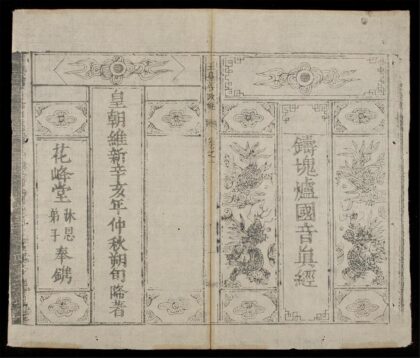 鑄塊爐國音眞經
皇朝維新辛亥年仲秋朔旬降著
花峰堂沐恩弟子奉鐫